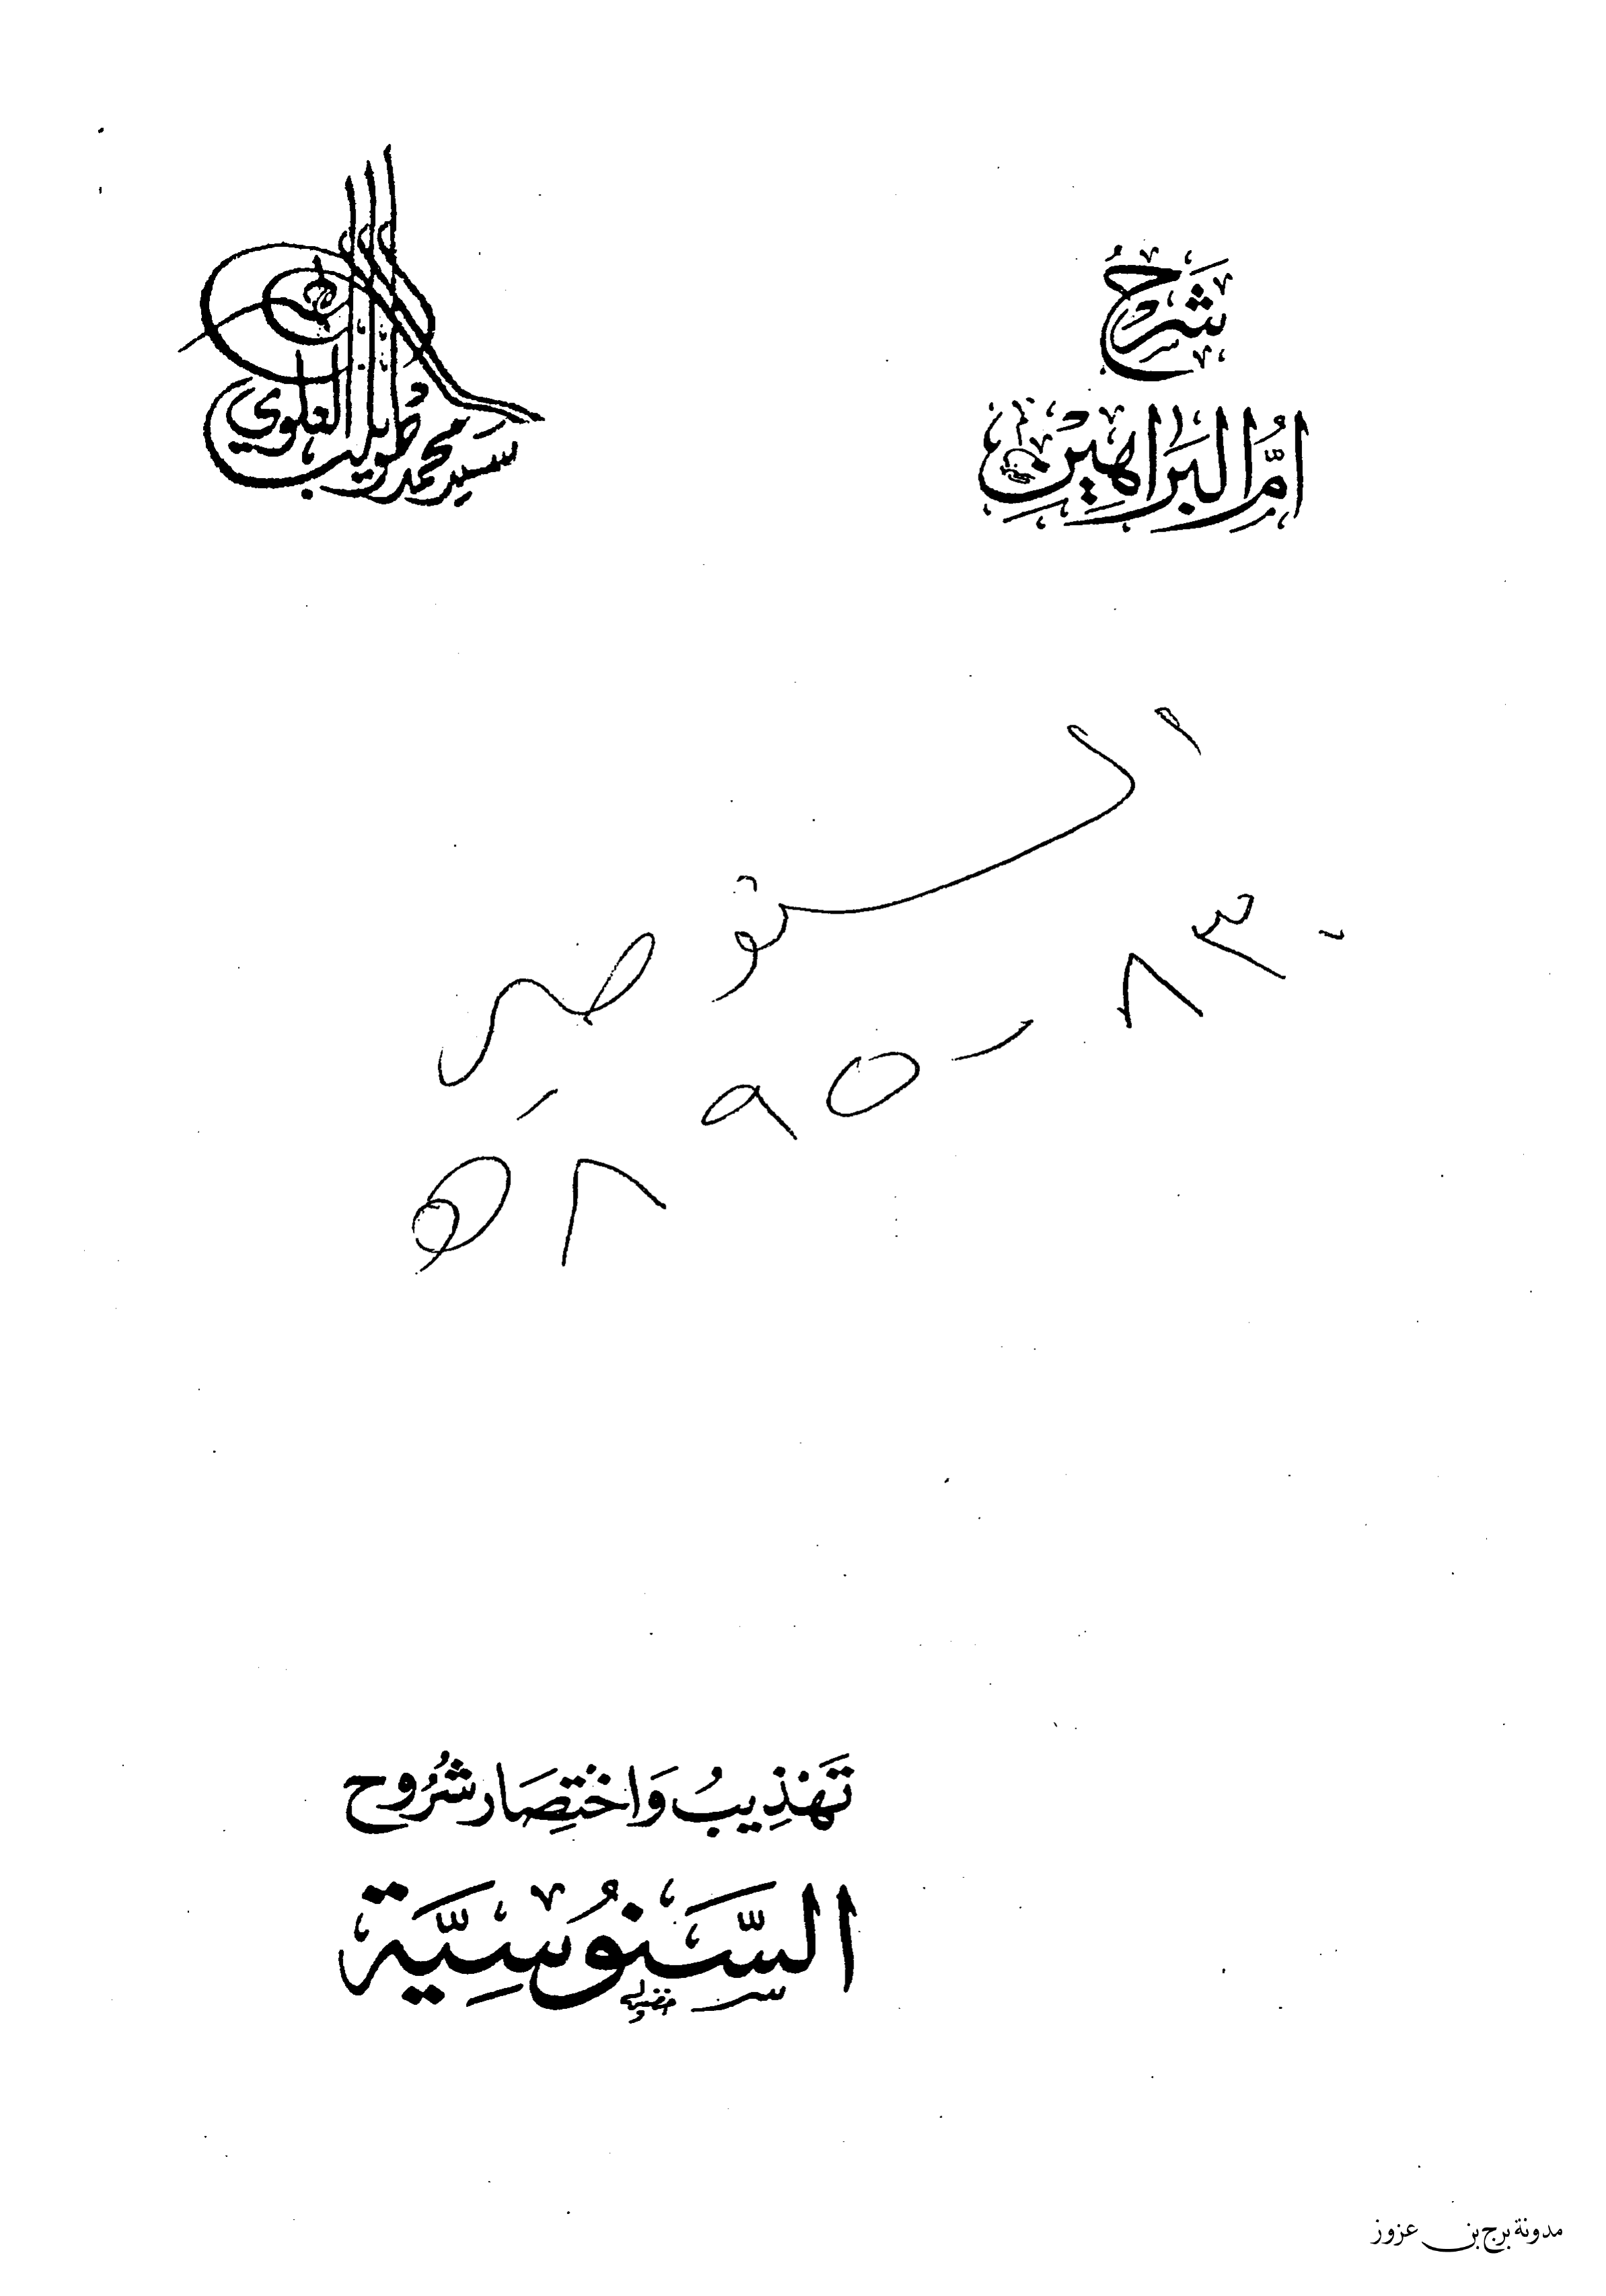 شَرْحُ
أُمِّ الْبَرَاهِينِ
سيد محمد العلوي
السنوسي
٨٣٠ - ٨٩٥ هـ
تَهْذِيبُ وَاخْتِصَار شُرُوح
السَّنُوسِيَّة
مدونة برج بن عزوز